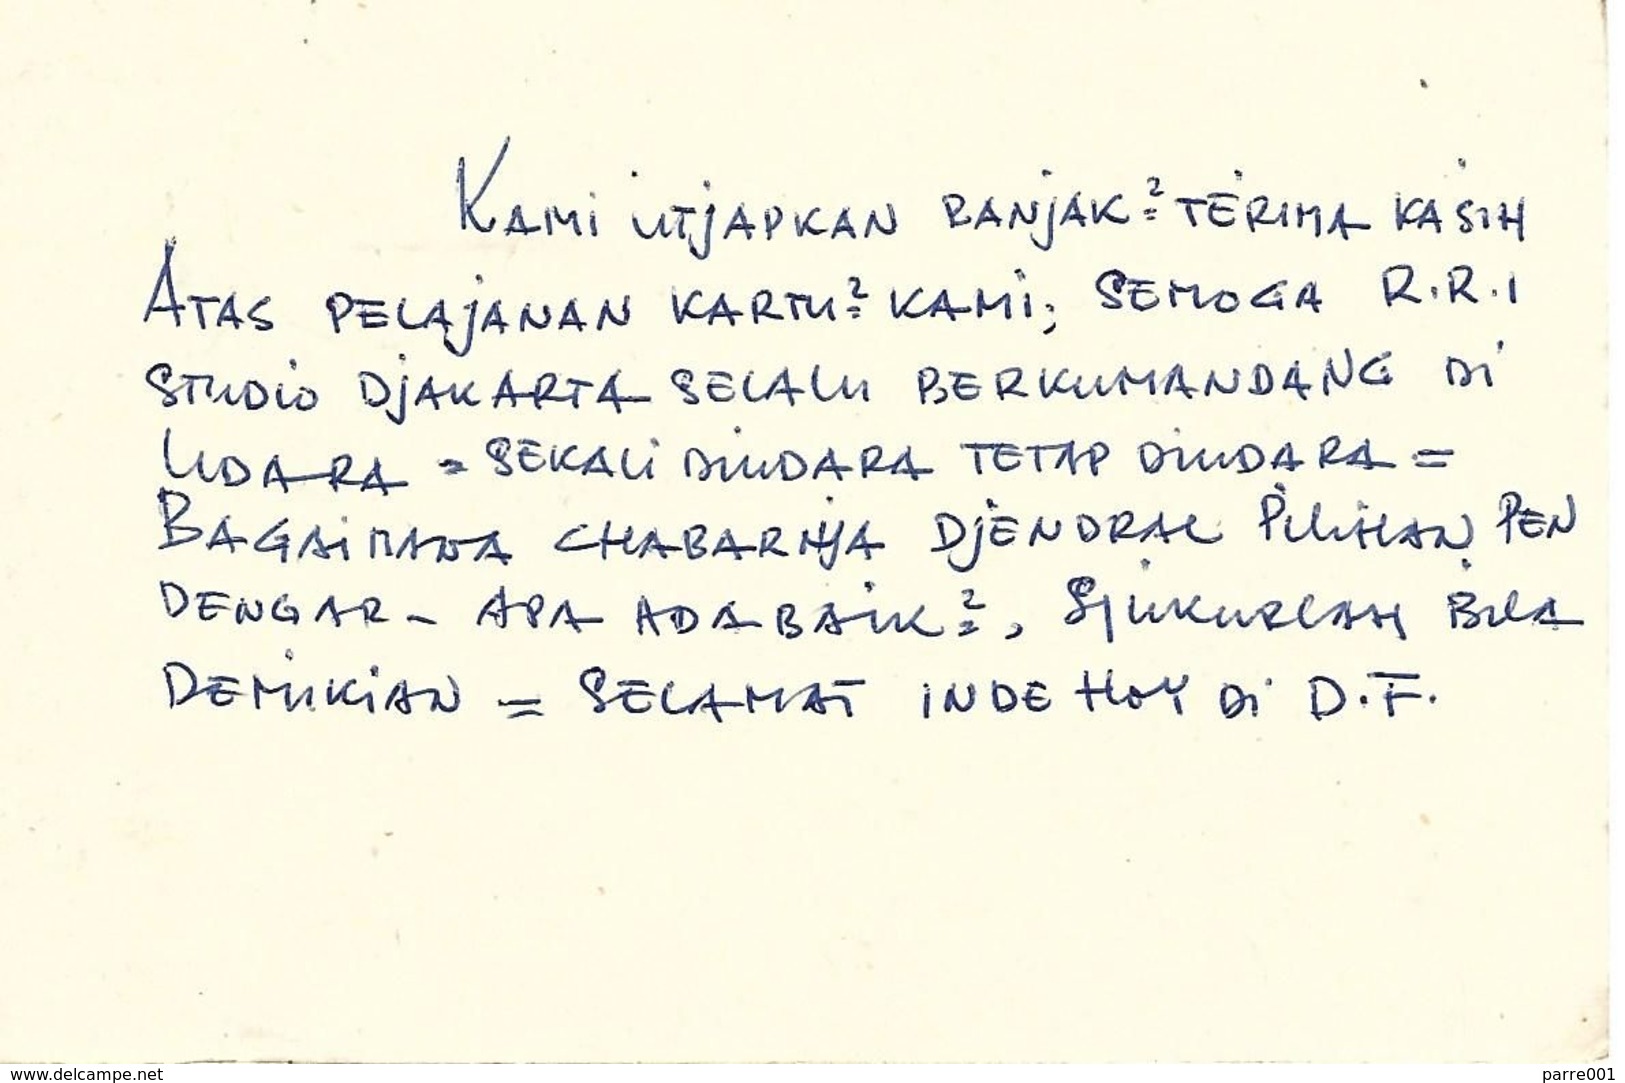 Kami utjapkan banjak² terima kasih
Atas pelajanan kartu² kami; semoga R.R.I
Studio Djakarta selalu berkumandang di
Udara = sekali diudara tetap diudara =
Bagaimana chabarnja Djendral Pilihan Pen
dengar - apa ada baik², Sjukurlah bila
demikian = selamat inde hoy di D.F.
www.delcampe.net
parre001